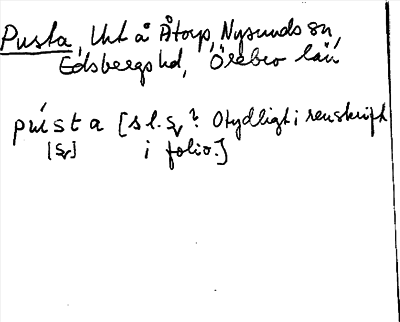 Pusta, Uht å Åtorp, Nysunds sn,
Edsbergs hd, Örebro län
pústa [sl. s̬? Otydligt i renskrift
[s̬] i folio.]